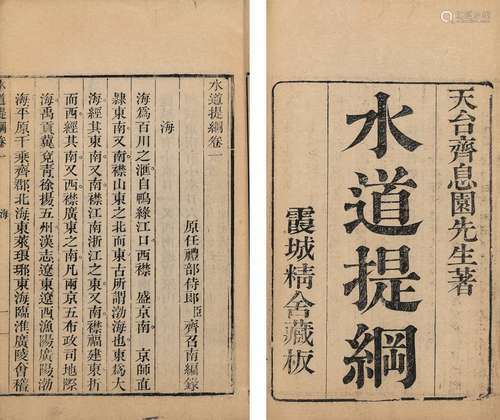 天台齊息園先生著
水道提綱
霞城精舍藏板
水道提綱卷一
原任禮部侍郎臣齊召南編錄
海
海爲百川之滙自鴨綠江口西襟 盛京南 京師直
隸東南又南襟山東之北而東古所謂渤海也東爲大
海經其東又南襟江南浙江之東又南襟福建東折
而西經其南又西襟廣東之南凡兩京五布政司地際
海禹貢冀兗青徐揚五州漢志遼東遼西漁陽廣陽渤
海平原千乘齊郡北海東萊琅琊東海臨淮廣陵會稽
水道提綱卷一 海